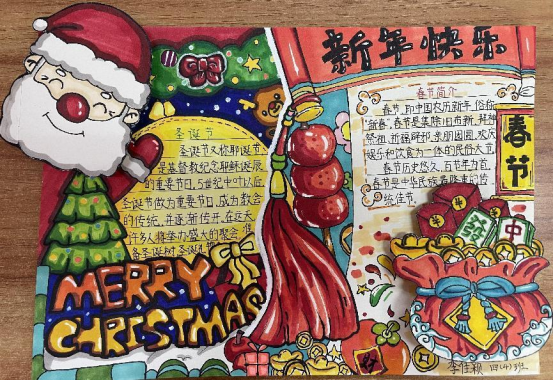 新年快乐
圣诞节
圣诞节又称耶诞节
是基督教纪念耶稣诞辰
的重要节日,5世纪中叶以后
圣诞节做为重要节日,成为教会
的传统,并逐渐传开,在这天
许多人将举办盛大的聚会,准
备圣诞树,圣诞
MERRY
CHRISTMAS
春节简介
春节,即中国农历新年,俗称
"新春",春节是集除旧布新、拜神
祭祖、祈福辟邪、亲朋团圆、欢庆
娱乐和饮食为一体的民俗大节
春节历史悠久,百节年为首,
春节是中华民族最隆重的传
统佳节。
春节
發
中
李佳颖 四(4)班